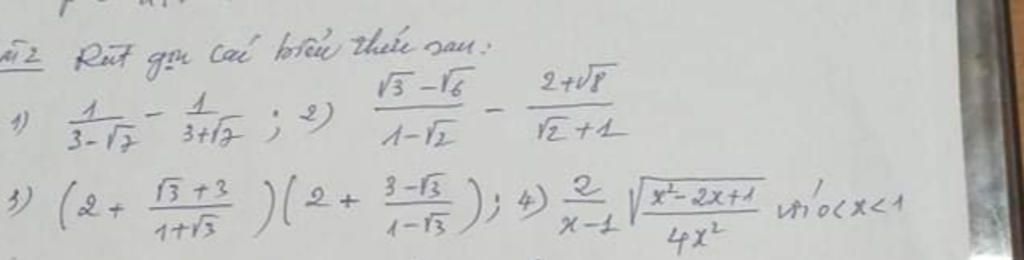 2 Rút gọn các biểu thức sau:
1) 1/(3-√7) - 1/(3+√7) ; 2) (√3 -√6)/(1-√2) - (2+√8)/(√2 +1)
3) (2 + (√3 +3)/(1+√3)) (2 + (3-√3)/(1-√3)); 4) 2/(x-1) √((x²-2x+1)/(4x²)) với 0<x<1